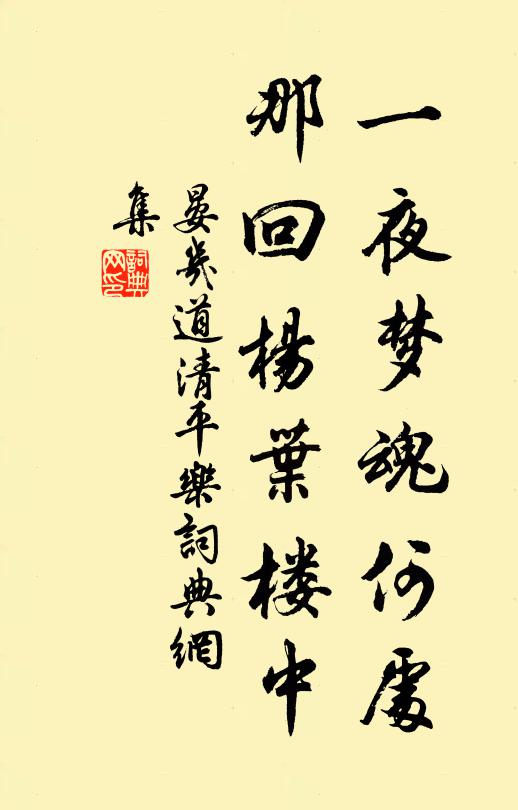 一夜梦魂何處
那回楊葉楼中
晏幾道清平樂詞典網
集
詞典
网印